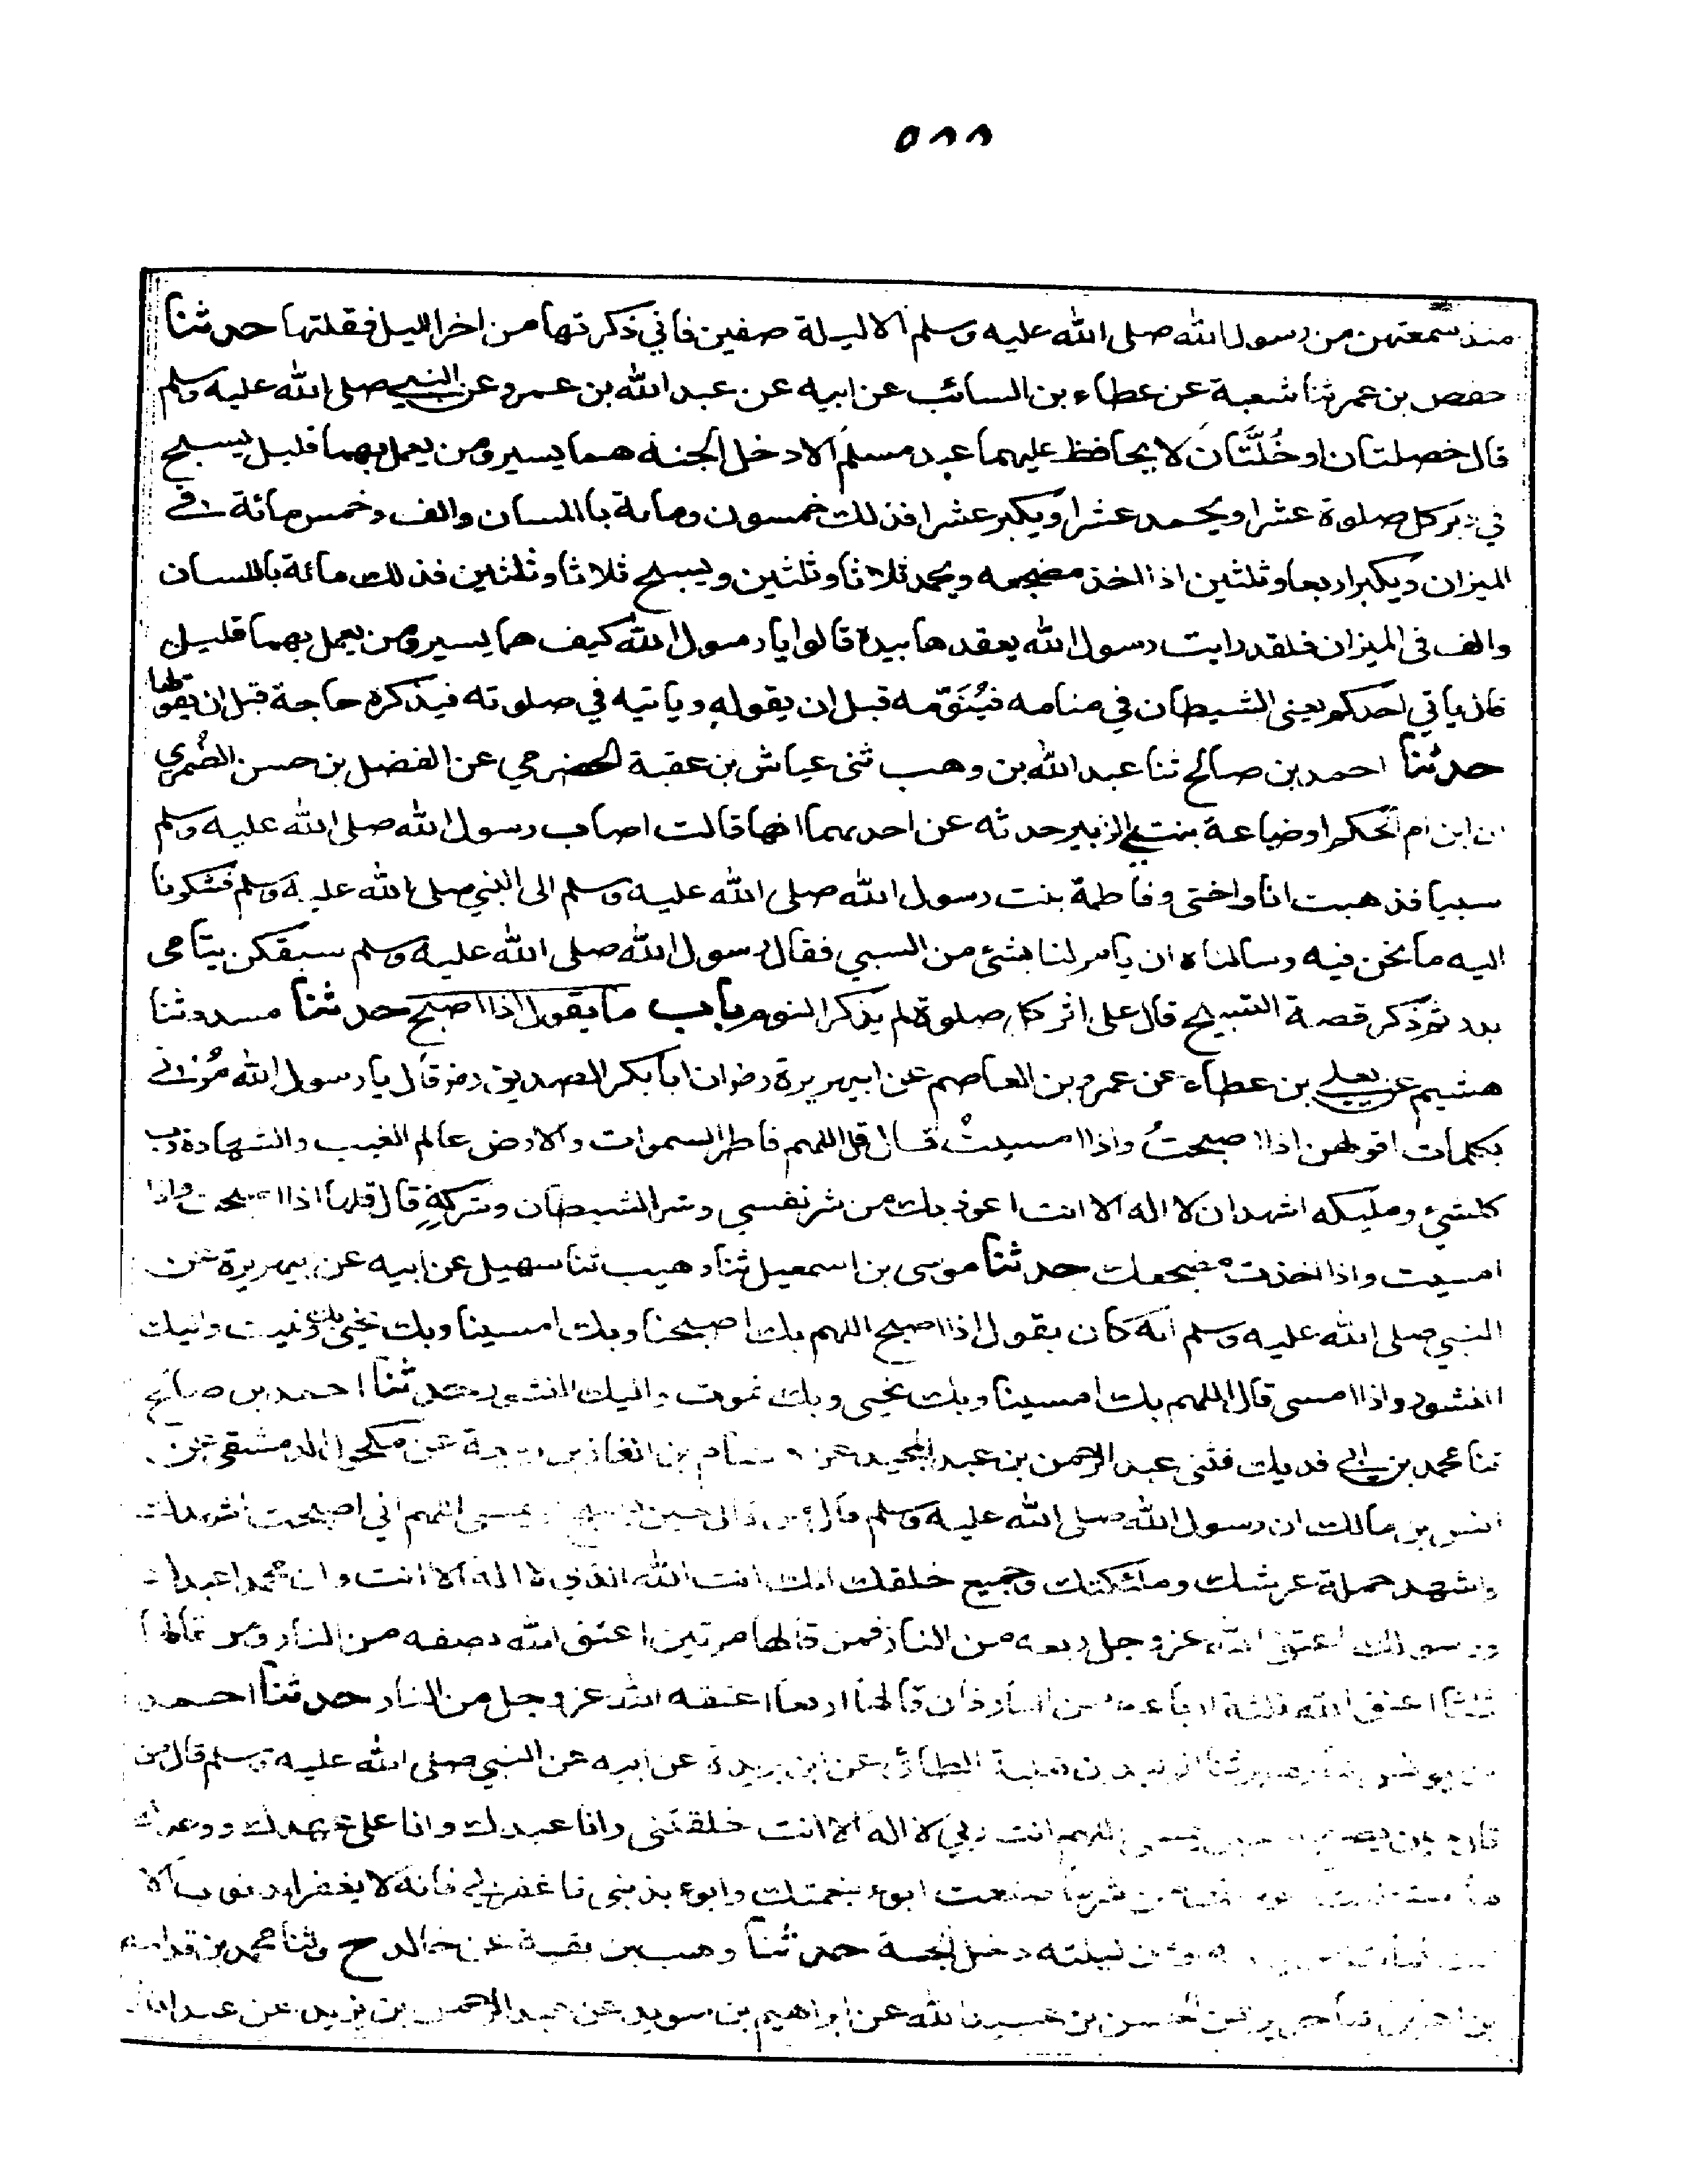 ٥٨٨
منذ سمعتهن من رسول الله صلى الله عليه وسلم الا ليلة صفين فاني ذكرتها من اخر الليل فقلتها حدثنا
حفص بن عمر ثنا شعبة عن عطاء بن السائب عن ابيه عن عبد الله بن عمرو عن النبي صلى الله عليه وسلم
قال خصلتان او خُلَّتَان لا يحافظ عليهما عبد مسلم الا دخل الجنة هما يسير ومن يعمل بهما قليل يسبح
في دبر كل صلوة عشرا ويحمد عشرا ويكبر عشرا فذلك خمسون ومائة باللسان والف وخمس مائة في
الميزان ويكبر اربعا وثلثين اذا اخذ مضجعه ويحمد ثلاثا وثلثين ويسبح ثلاثا وثلثين فذلك مائة باللسان
والف في الميزان فلقد رايت رسول الله يعقدها بيدة قالوا يا رسول الله كيف هما يسير ومن يعمل بهما قليل
قال ياتي احدكم يعنى الشيطان في منامه فيُنَوّمه قبل ان يقوله وياتيه في صلوته فيذكره حاجة قبل ان يقولها
حدثنا احمد بن صالح ثنا عبد الله بن وهب ثنى عياش بن عقبة الحضرمي عن الفضل بن حسن الضمري
ان ابن ام الحكم او ضباعة بنتي الزبير حدثه عن احدىهما انها قالت اصاب رسول الله صلى الله عليه وسلم
سبيا فذهبت انا واختى وفاطمة بنت رسول الله صلى الله عليه وسلم الى النبي صلى الله عليه وسلم فشكونا
اليه ما نحن فيه وسالناه ان يامر لنا بشئ من السبي فقال رسول الله صلى الله عليه وسلم سبقكن يتامى
بدر ثم ذكر قصة التسبيح قال على اثر كل صلوة لم يذكر النوم باب ما يقول اذا اصبح حدثنا مسدد ثنا
هشيم عن يعلى بن عطاء عن عمرو بن العاصم عن ابيهريرة رض ان ابا بكر الصديق رض قال يا رسول الله مُرْني
بكلمات اقولهن اذا اصبحتُ واذا امسيتُ قال قل اللهم فاطر السموات والارض عالم الغيب والشهادة رب
كلشيء ومليكه اشهد ان لا اله الا انت اعوذ بك من شر نفسي وشر الشيطان وشركهِ قال قلها اذا اصبحت واذا
امسيت واذا اخذت مضجعك حدثنا موسى بن اسمعيل ثنا وهيب ثنا سهيل عن ابيه عن ابيهريرة عن
النبي صلى الله عليه وسلم انه كان يقول اذا اصبح اللهم بك اصبحنا وبك امسينا وبك نحيى وبك نموت واليك
النشور واذا امسى قال اللهم بك امسينا وبك نحيى وبك نموت واليك النشور حدثنا احمد بن صالح
ثنا محمد بن ابي فديك فثنى عبد الرحمن بن عبد المجيد عن هشام بن الغاز بن ربيعة عن مكحول الدمشقي عن
انس بن مالك ان رسول الله صلى الله عليه وسلم قال من قال حين يصبح او يمسى اللهم اني اصبحت اشهدك
واشهد حملة عرشك وملئكتك وجميع خلقك انك انت الله الذي لا اله الا انت وان محمدا عبدك
ورسولك اعتق الله عز وجل ربعه من النار فمن قالها مرتين اعتق الله نصفه من النار ومن قالها
ثلثا اعتق الله ثلثة ارباعه من النار فان قالها اربعا اعتقه الله عز وجل من النار حدثنا احمد
بن يونس ثنا زهير ثنا الوليد بن ثعلبة الطائي عن ابن بريدة عن ابيه عن النبي صلى الله عليه وسلم قال من
قال حين يصبح او حين يمسى اللهم انت ربي لا اله الا انت خلقتنى وانا عبدك وانا على عهدك ووعدك
ما استطعت من شر ما صنعت ابوء بنعمتك وابوء بذنبى فاغفر لي فانه لا يغفر الذنوب الا
انت فمات من ليلته دخل الجنة حدثنا وهب بن بقية عن خالد ح وثنا محمد بن قدامة
بن اعين ثنا جرير عن الحسن بن عبيد الله عن ابراهيم بن سويد عن عبد الرحمن بن يزيد عن عبد الله